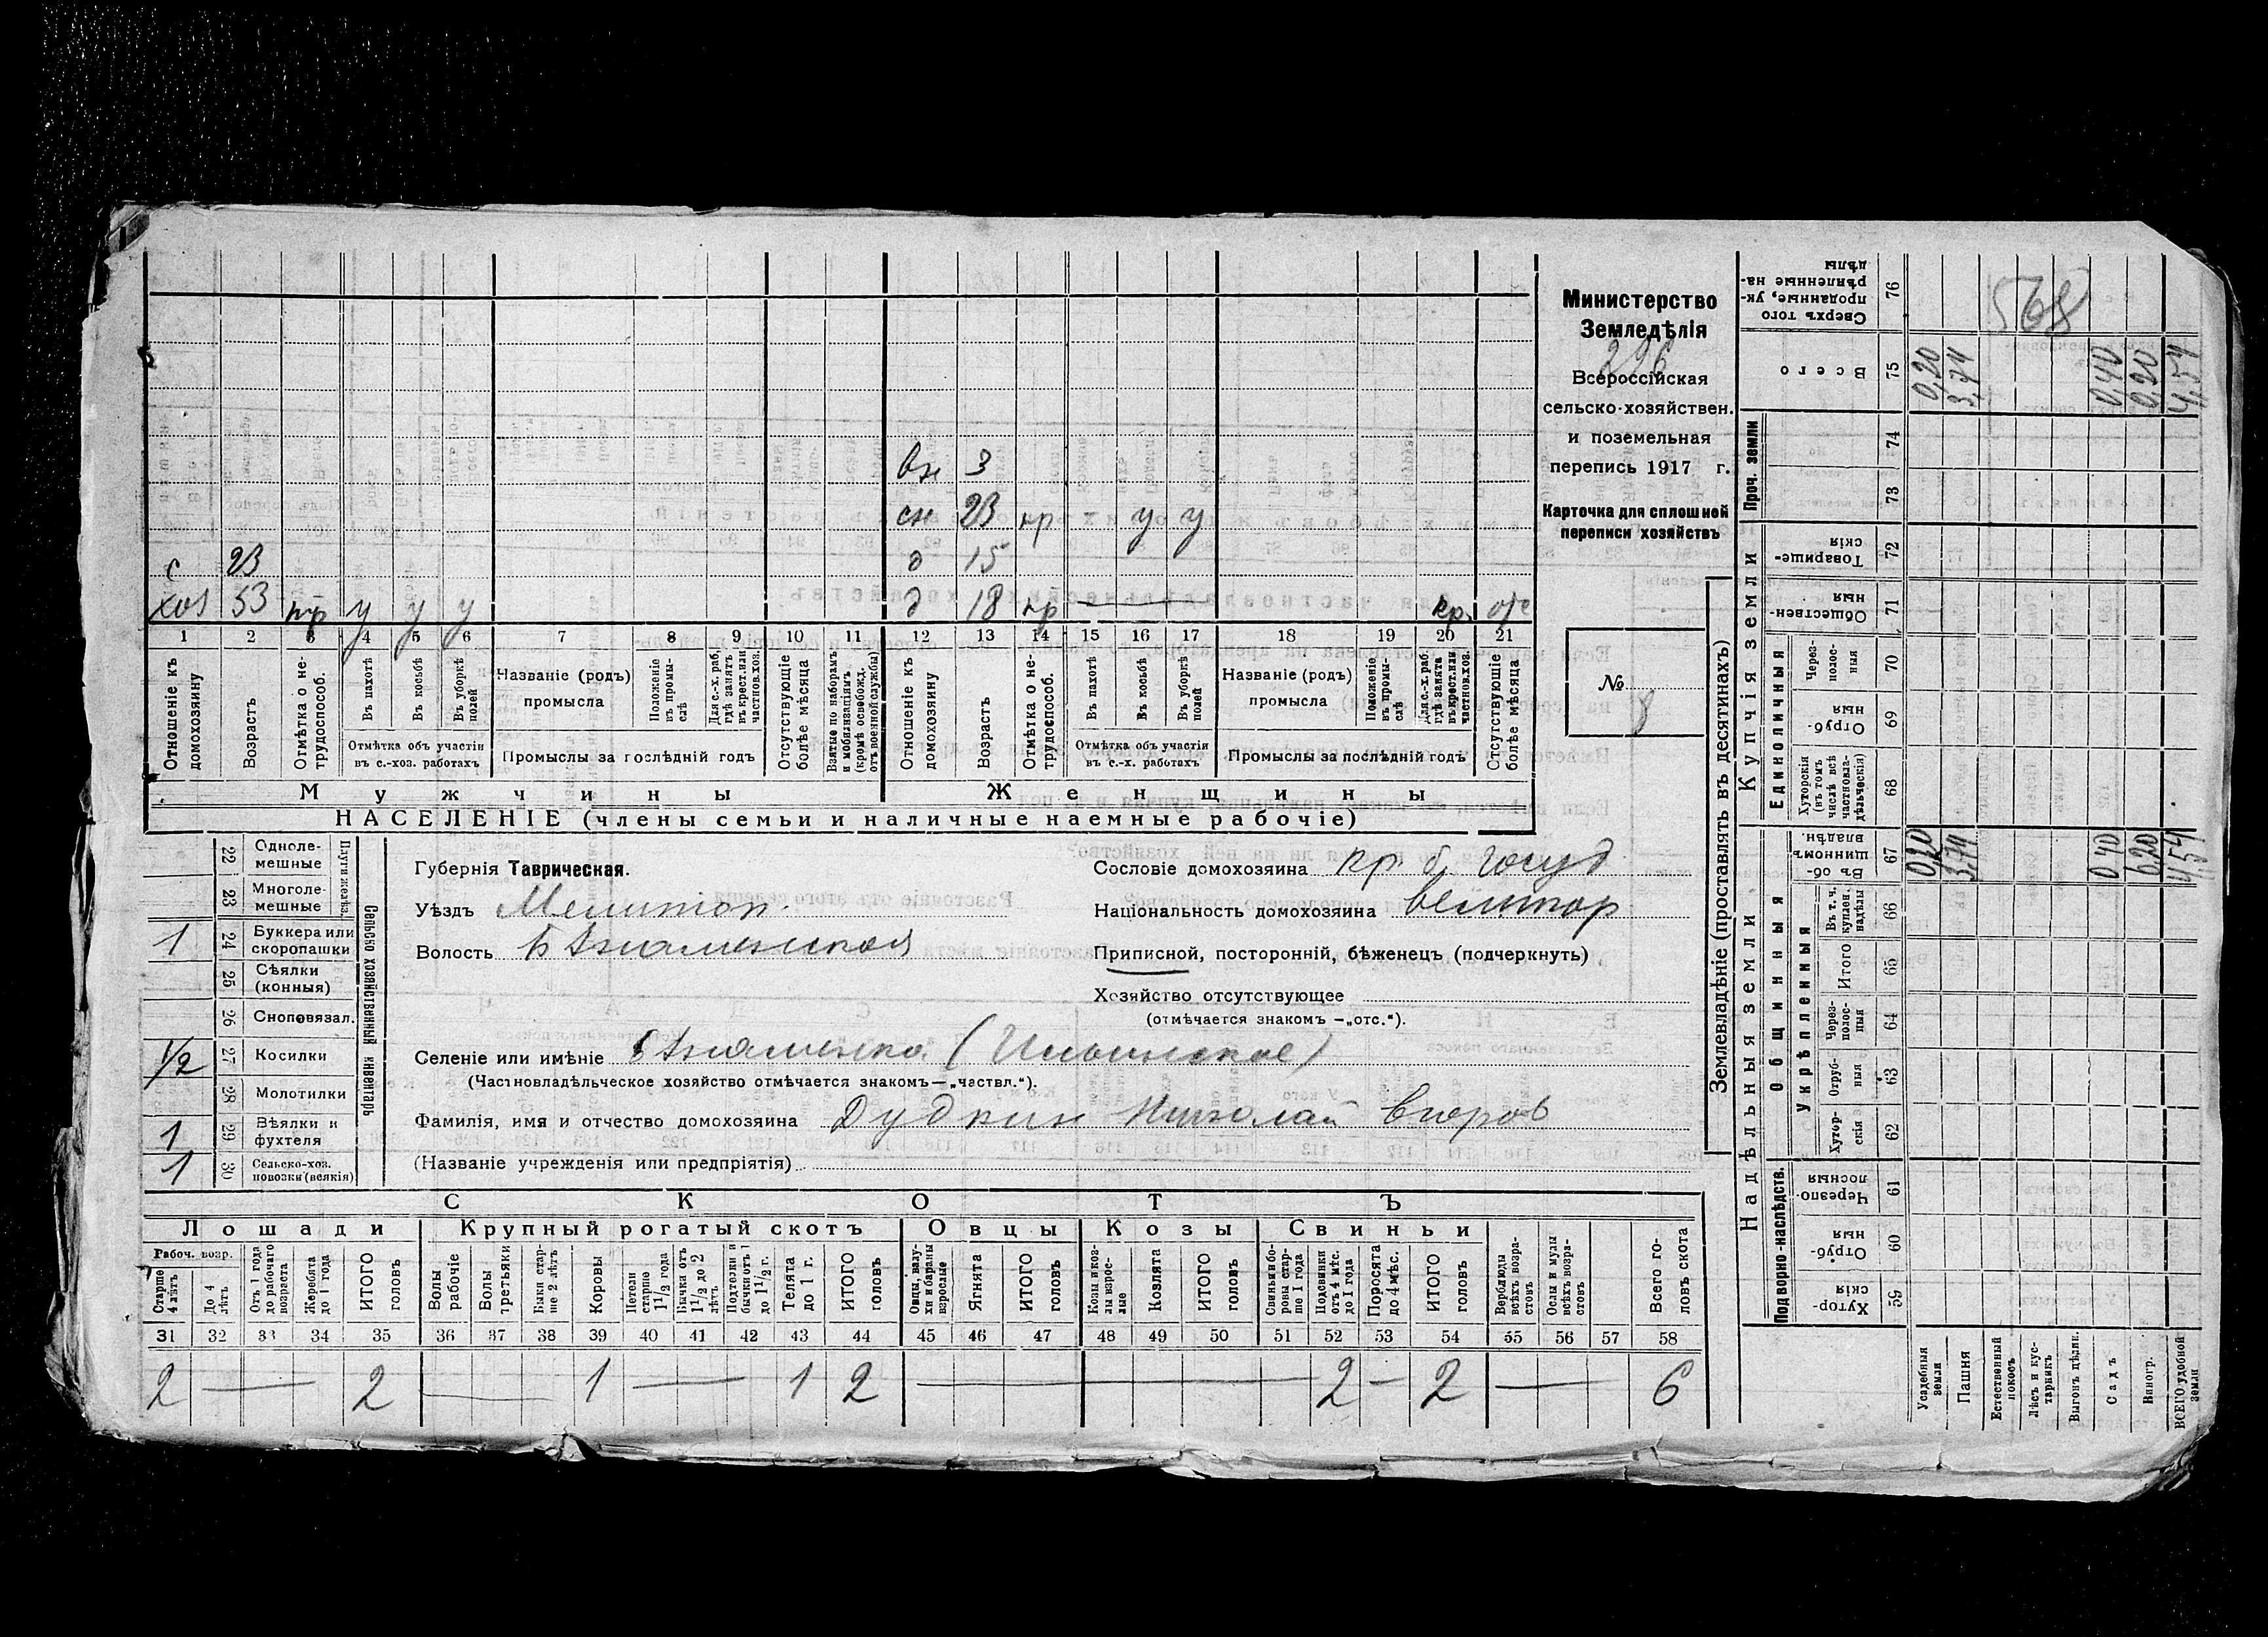 вн 3
сн 23 нр — у у
с 23 д 15
хоз 53 нр у у у д 18 нр — кр. о/с
1 2 3 4 5 6 7 8 9 10 11 12 13 14 15 16 17 18 19 20 21
Отношеніе къ домохозяину
Возрастъ
Отмѣтка о нетрудоспособ.
Въ пахотѣ
Въ косьбѣ
Въ уборкѣ полей
Отмѣтка объ участіи въ с.-хоз. работахъ
Названіе (родъ) промысла
Положеніе въ промыслѣ
Для с.-х. раб. гдѣ занятъ въ крест. или частнов. хоз.
Промыслы за послѣдній годъ
Отсутствующіе болѣе мѣсяца
Взятые по наборамъ и мобилизаціямъ (кромѣ освобожд. отъ военной службы)
Отношеніе къ домохозяину
Возрастъ
Отмѣтка о нетрудоспособ.
Въ пахотѣ
Въ косьбѣ
Въ уборкѣ полей
Отмѣтка объ участіи въ с.-х. работахъ
Названіе (родъ) промысла
Положеніе въ промыслѣ
Для с.-х. раб. гдѣ занята въ крест. или частнов. хоз.
Промыслы за послѣдній годъ
Отсутствующіе болѣе мѣсяца
Мужчины Женщины
НАСЕЛЕНІЕ (члены семьи и наличные наемные рабочіе)
Министерство
Земледѣлія
226
Всероссійская
сельско-хозяйствен.
и поземельная
перепись 1917 г.
Карточка для сплошной
переписи хозяйствъ
№ 8
22 Однолемешные
23 Многолемешные
Плуги желѣз.
1 24 Буккера или скоропашки
25 Сѣялки (конныя)
26 Сноповязал.
1/2 27 Косилки
28 Молотилки
1 29 Вѣялки и фухтеля
1 30 Сельско-хоз. повозки (всякія)
Сельско хозяйственный инвентарь
Губернія Таврическая.
Уѣздъ Мелитоп.
Волость Б Знаменская
Сословіе домохозяина кр. б. госуд
Національность домохозяина великор
Приписной, посторонній, бѣженец (подчеркнуть)
Хозяйство отсутствующее
(отмѣчается знакомъ —„отс.“).
Селеніе или имѣніе Б Знаменка (Ильинское)
(Частновладѣльческое хозяйство отмѣчается знакомъ—„частвл.“).
Фамилія, имя и отчество домохозяина Дудкин Николай
(Названіе учрежденія или предпріятія)
СКОТЪ
Лошади Крупный рогатый скотъ Овцы Козы Свиньи
Рабоч. возр.
Старше 4 лѣтъ
До 4 лѣтъ
Отъ 1 года до рабочаго возраста
Жеребята до 1 года
ИТОГО головъ
Волы рабочіе
Волы третьяки
Быки старше 2 лѣтъ
Коровы
Нетели старше 1 1/2 года
Бычки отъ 1 1/2 до 2 лѣтъ
Подтелки и бычки отъ 1 до 1 1/2 г.
Телята до 1 г.
ИТОГО головъ
Овцы, валухи и бараны взрослые
Ягнята
ИТОГО головъ
Козы и козлы взрослые
Козлята
ИТОГО головъ
Свиньи и боровы старше 1 года
Подсвинки отъ 4 мѣс. до 1 года
Поросята до 4 мѣс.
ИТОГО головъ
Верблюды всѣхъ возрастовъ
Ослы и мулы всѣхъ возрастовъ
Всего головъ скота
31 32 33 34 35 36 37 38 39 40 41 42 43 44 45 46 47 48 49 50 51 52 53 54 55 56 57 58
2 — 2 — 1 — 1 2 — 2 — 2 — 6
Землевладѣніе (проставлять въ десятинахъ)
Надѣльныя земли Купчія земли Проч. земли
Подворно-наслѣдств. Общинныя Единоличныя
Укрѣпленныя
Хуторскія 59
Отрубныя 60
Черезполосныя 61
Хуторскія 62
Отрубныя 63
Черезполосныя 64
Итого 65
Въ т. ч. куплен. надѣлы 66
Въ общинномъ владѣн. 67
Хуторскія (въ томъ числѣ всѣ частновладѣльческія) 68
Отрубныя 69
Черезполосныя 70
Общественныя 71
Товарищескія 72
73
74
Всего 75
Сверхъ того проданные, укрѣпленные надѣлы 76
568
Усадебныя земли 0,20 0,20
Пашня 3,74 3,74
Естественный покосъ
Лѣсъ и кустарникъ
Выгонъ дѣлин.
Садъ 0,40 0,40
Виногр. 0,20 0,20
ВСЕГО удобной земли 4,54 4,54